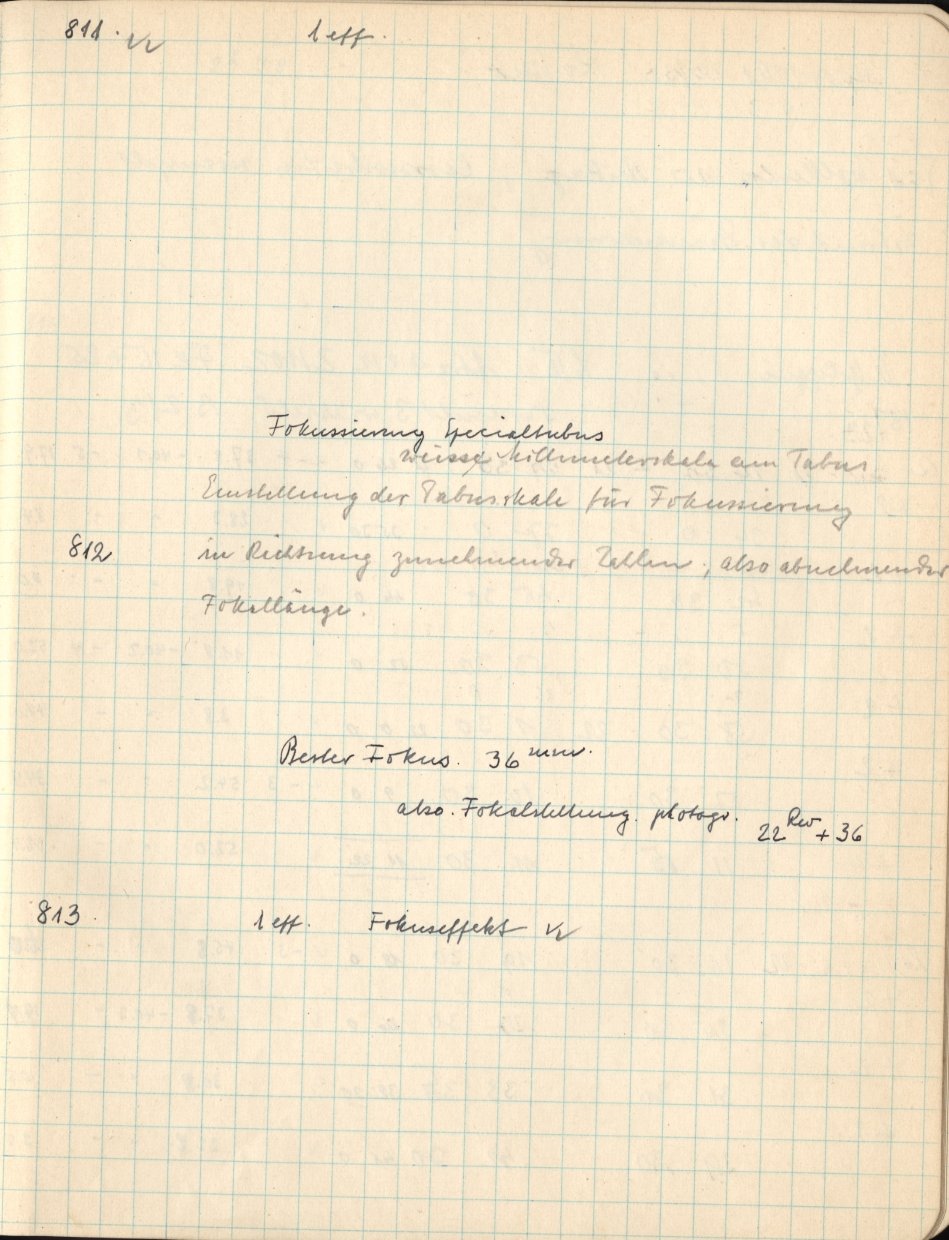 811. V2 1 eff.
Fokussierung Specialtubus
weisse Millimeterskala am Tubus
Einstellung der Tubusskale für Fokussierung
812 in Richtung zunehmender Zahlen, also abnehmender
Fokallänge.
Bester Fokus. 36 mm.
also. Fokalstellung. photogr. 22 Rev + 36
813. 1 eff. Fokuseffekt V2